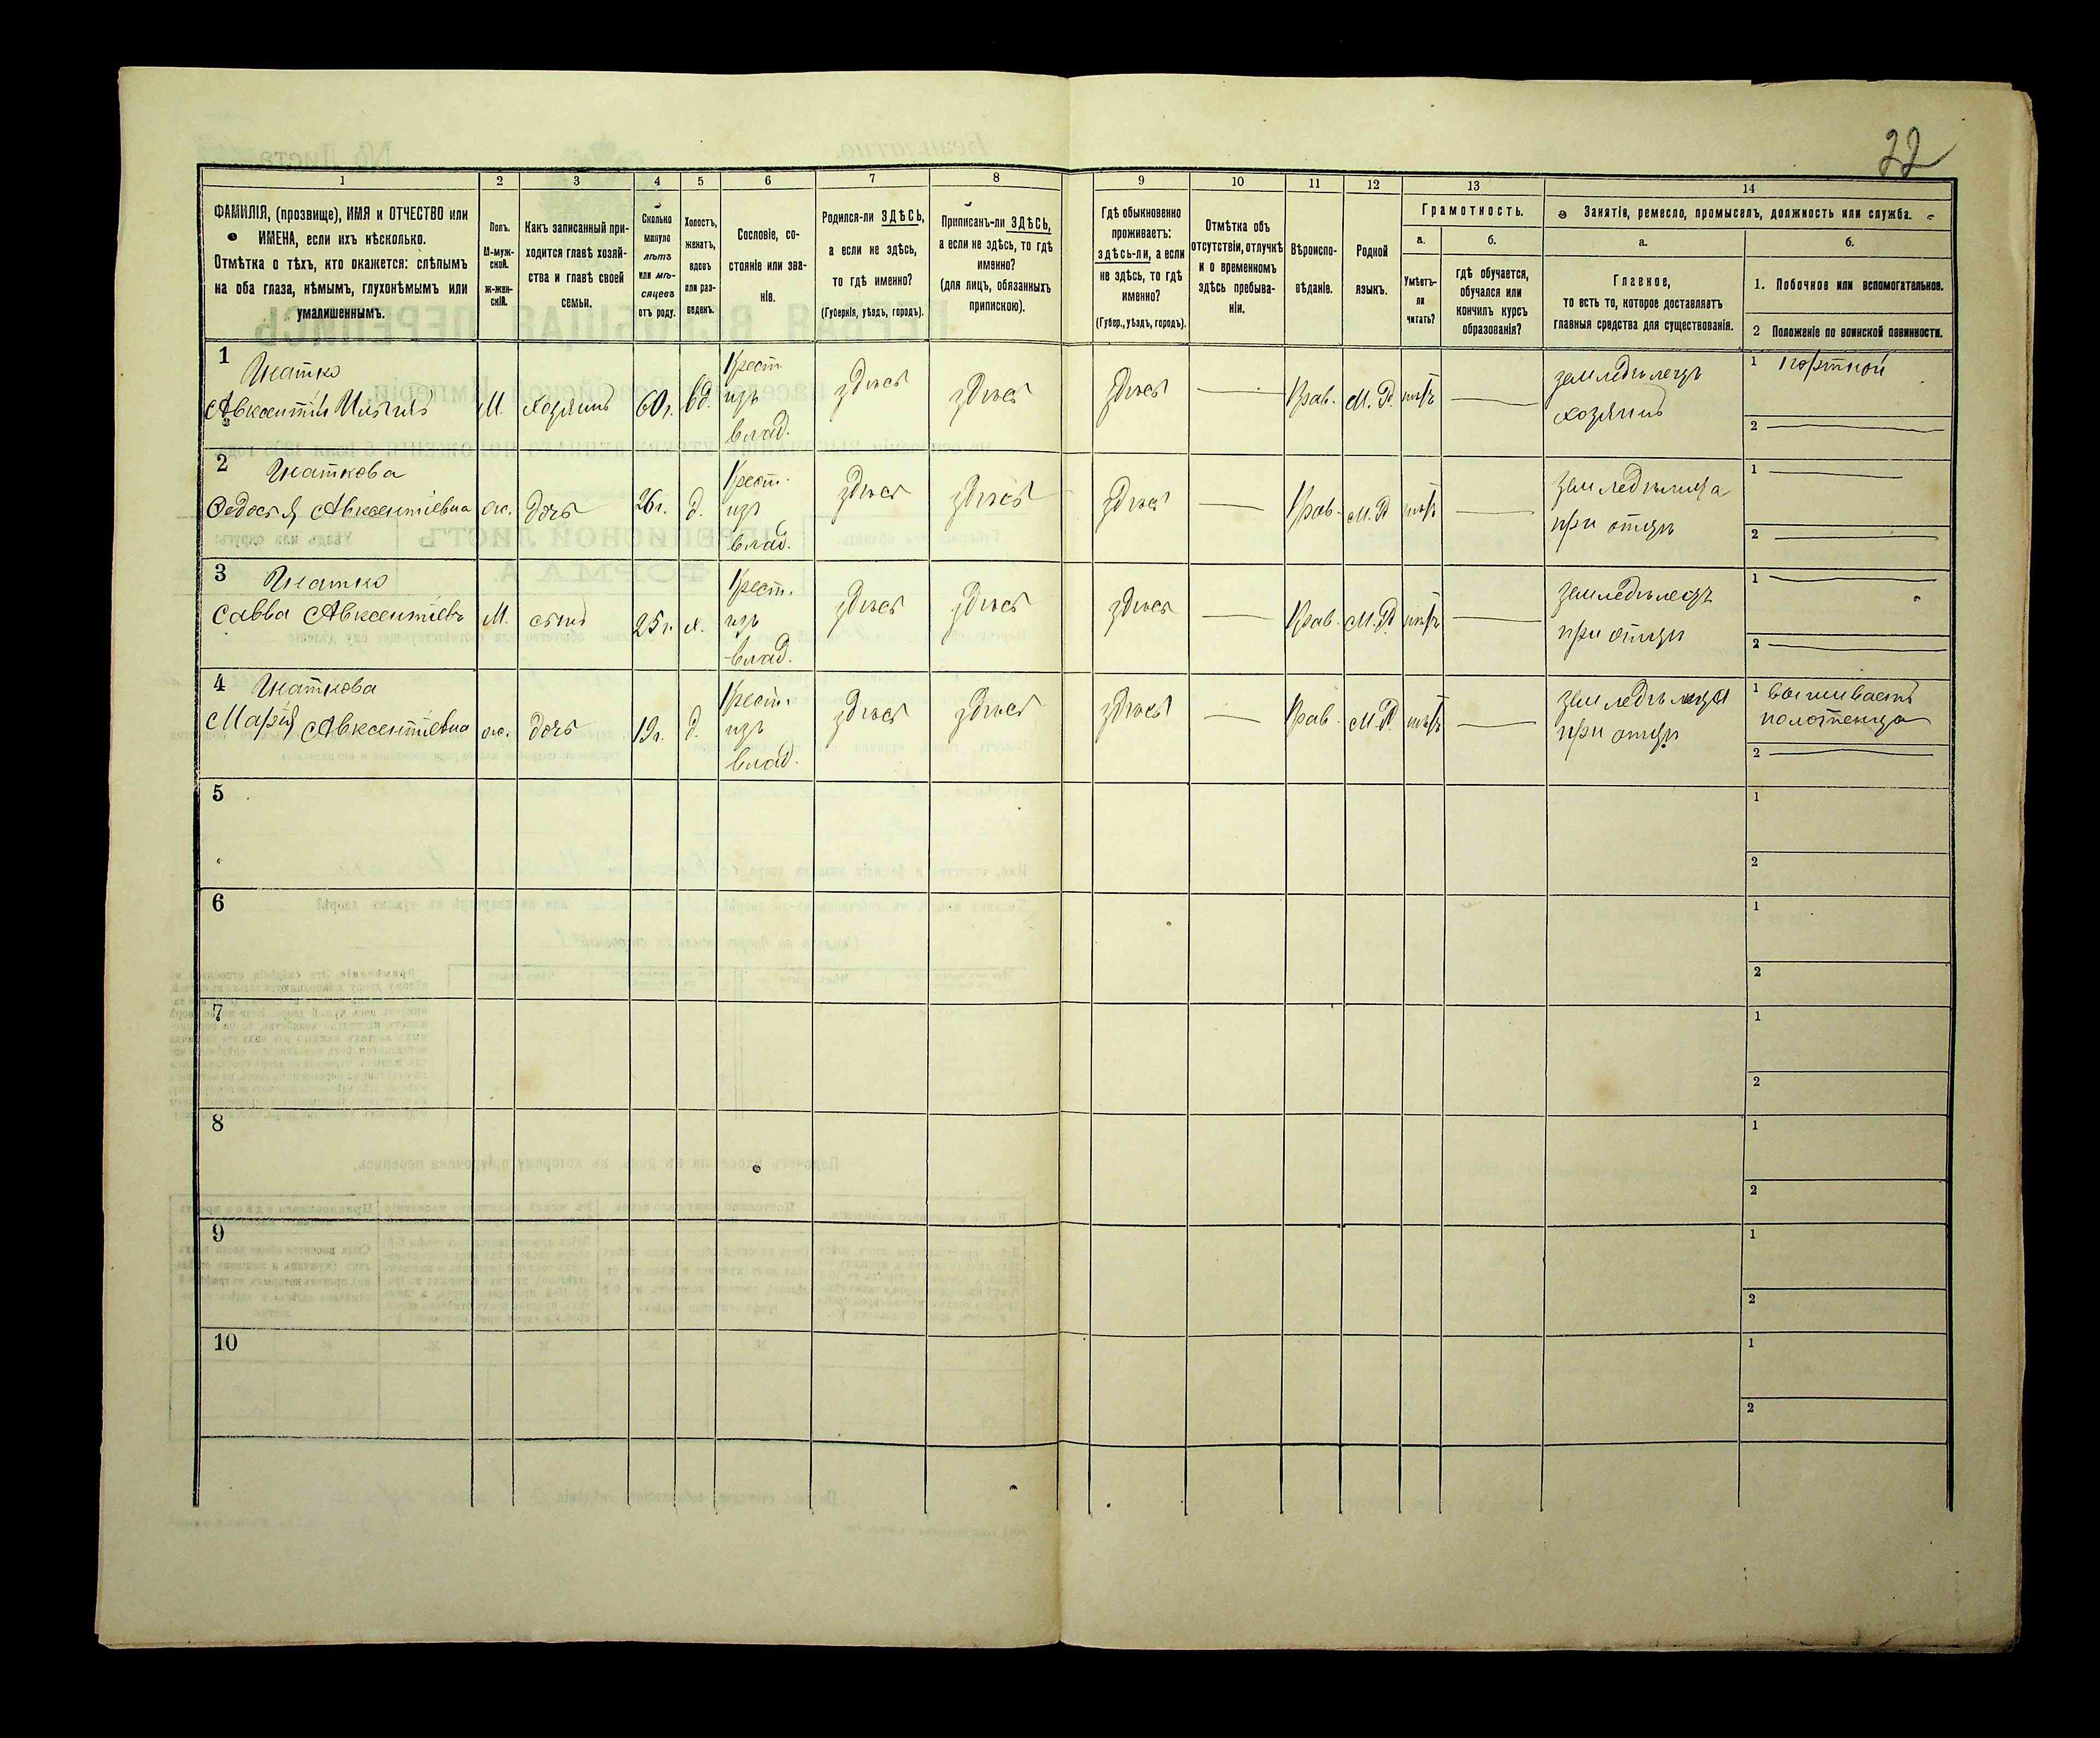 22
1
2
3
4
5
6
7
8
9
10
11
12
13
14
ФАМИЛІЯ, (прозвище), ИМЯ и ОТЧЕСТВО или
ИМЕНА, если ихъ нѣсколько.
Отмѣтка о тѣхъ, кто окажется: слѣпымъ
на оба глаза, нѣмымъ, глухонѣмымъ или
умалишеннымъ.
Полъ.
М-муж-
ской.
ж-жен-
скій.
Какъ записанный при-
ходится главѣ хозяй-
ства и главѣ своей
семьи.
Сколько
минуло
лѣтъ
или мѣ-
сяцевъ
отъ роду.
Холостъ,
женатъ,
вдовъ
или раз-
веденъ.
Сословіе, со-
стояніе или зва-
ніе.
Родился-ли ЗДѢСЬ,
а если не здѣсь,
то гдѣ именно?
(Губернія, уѣздъ, городъ).
Приписанъ-ли ЗДѢСЬ,
а если не здѣсь, то гдѣ
именно?
(для лицъ, обязанныхъ
припискою).
Гдѣ обыкновенно
проживаетъ:
здѣсь-ли, а если
не здѣсь, то гдѣ
именно?
(Губер., уѣздъ, городъ).
Отмѣтка объ
отсутствіи, отлучкѣ
и о временномъ
здѣсь пребыва-
ніи.
Вѣроиспо-
вѣданіе.
Родной
языкъ.
Грамотность.
а.
Умѣетъ-
ли
читать?
б.
гдѣ обучается,
обучался или
кончилъ курсъ
образованія?
Занятія, ремесло, промыселъ, должность или служба.
а.
Главное,
то есть то, которое доставляетъ
главныя средства для существованія.
б.
1. Побочное или вспомогательное.
2 Положеніе по воинской повинности.
1
Авксентій Ильичъ
М.
хозяинъ
60 г.
вд.
Крест.
изъ
влад.
здѣсь
здѣсь
здѣсь
Прав.
М. Р.
нѣтъ
земледѣлецъ
хозяинъ
1 портной
2
2
Федосья Авксентіевна
ж.
дочь
26 г.
д.
Крест.
изъ
влад.
здѣсь
здѣсь
здѣсь
Прав.
М. Р.
нѣтъ
земледѣлица
при отцѣ
1
2
3
Савва Авксентіевъ
М.
сынъ
25 г.
х.
Крест.
изъ
влад.
здѣсь
здѣсь
здѣсь
Прав.
М. Р.
нѣтъ
земледѣлецъ
при отцѣ
1
2
4
Марія Авксентіевна
ж.
дочь
19 г.
д.
Крест.
изъ
влад.
здѣсь
здѣсь
здѣсь
Прав.
М. Р.
нѣтъ
земледѣлица
при отцѣ
1 вышиваетъ
полотенца
2
5
1
2
6
1
2
7
1
2
8
1
2
9
1
2
10
1
2